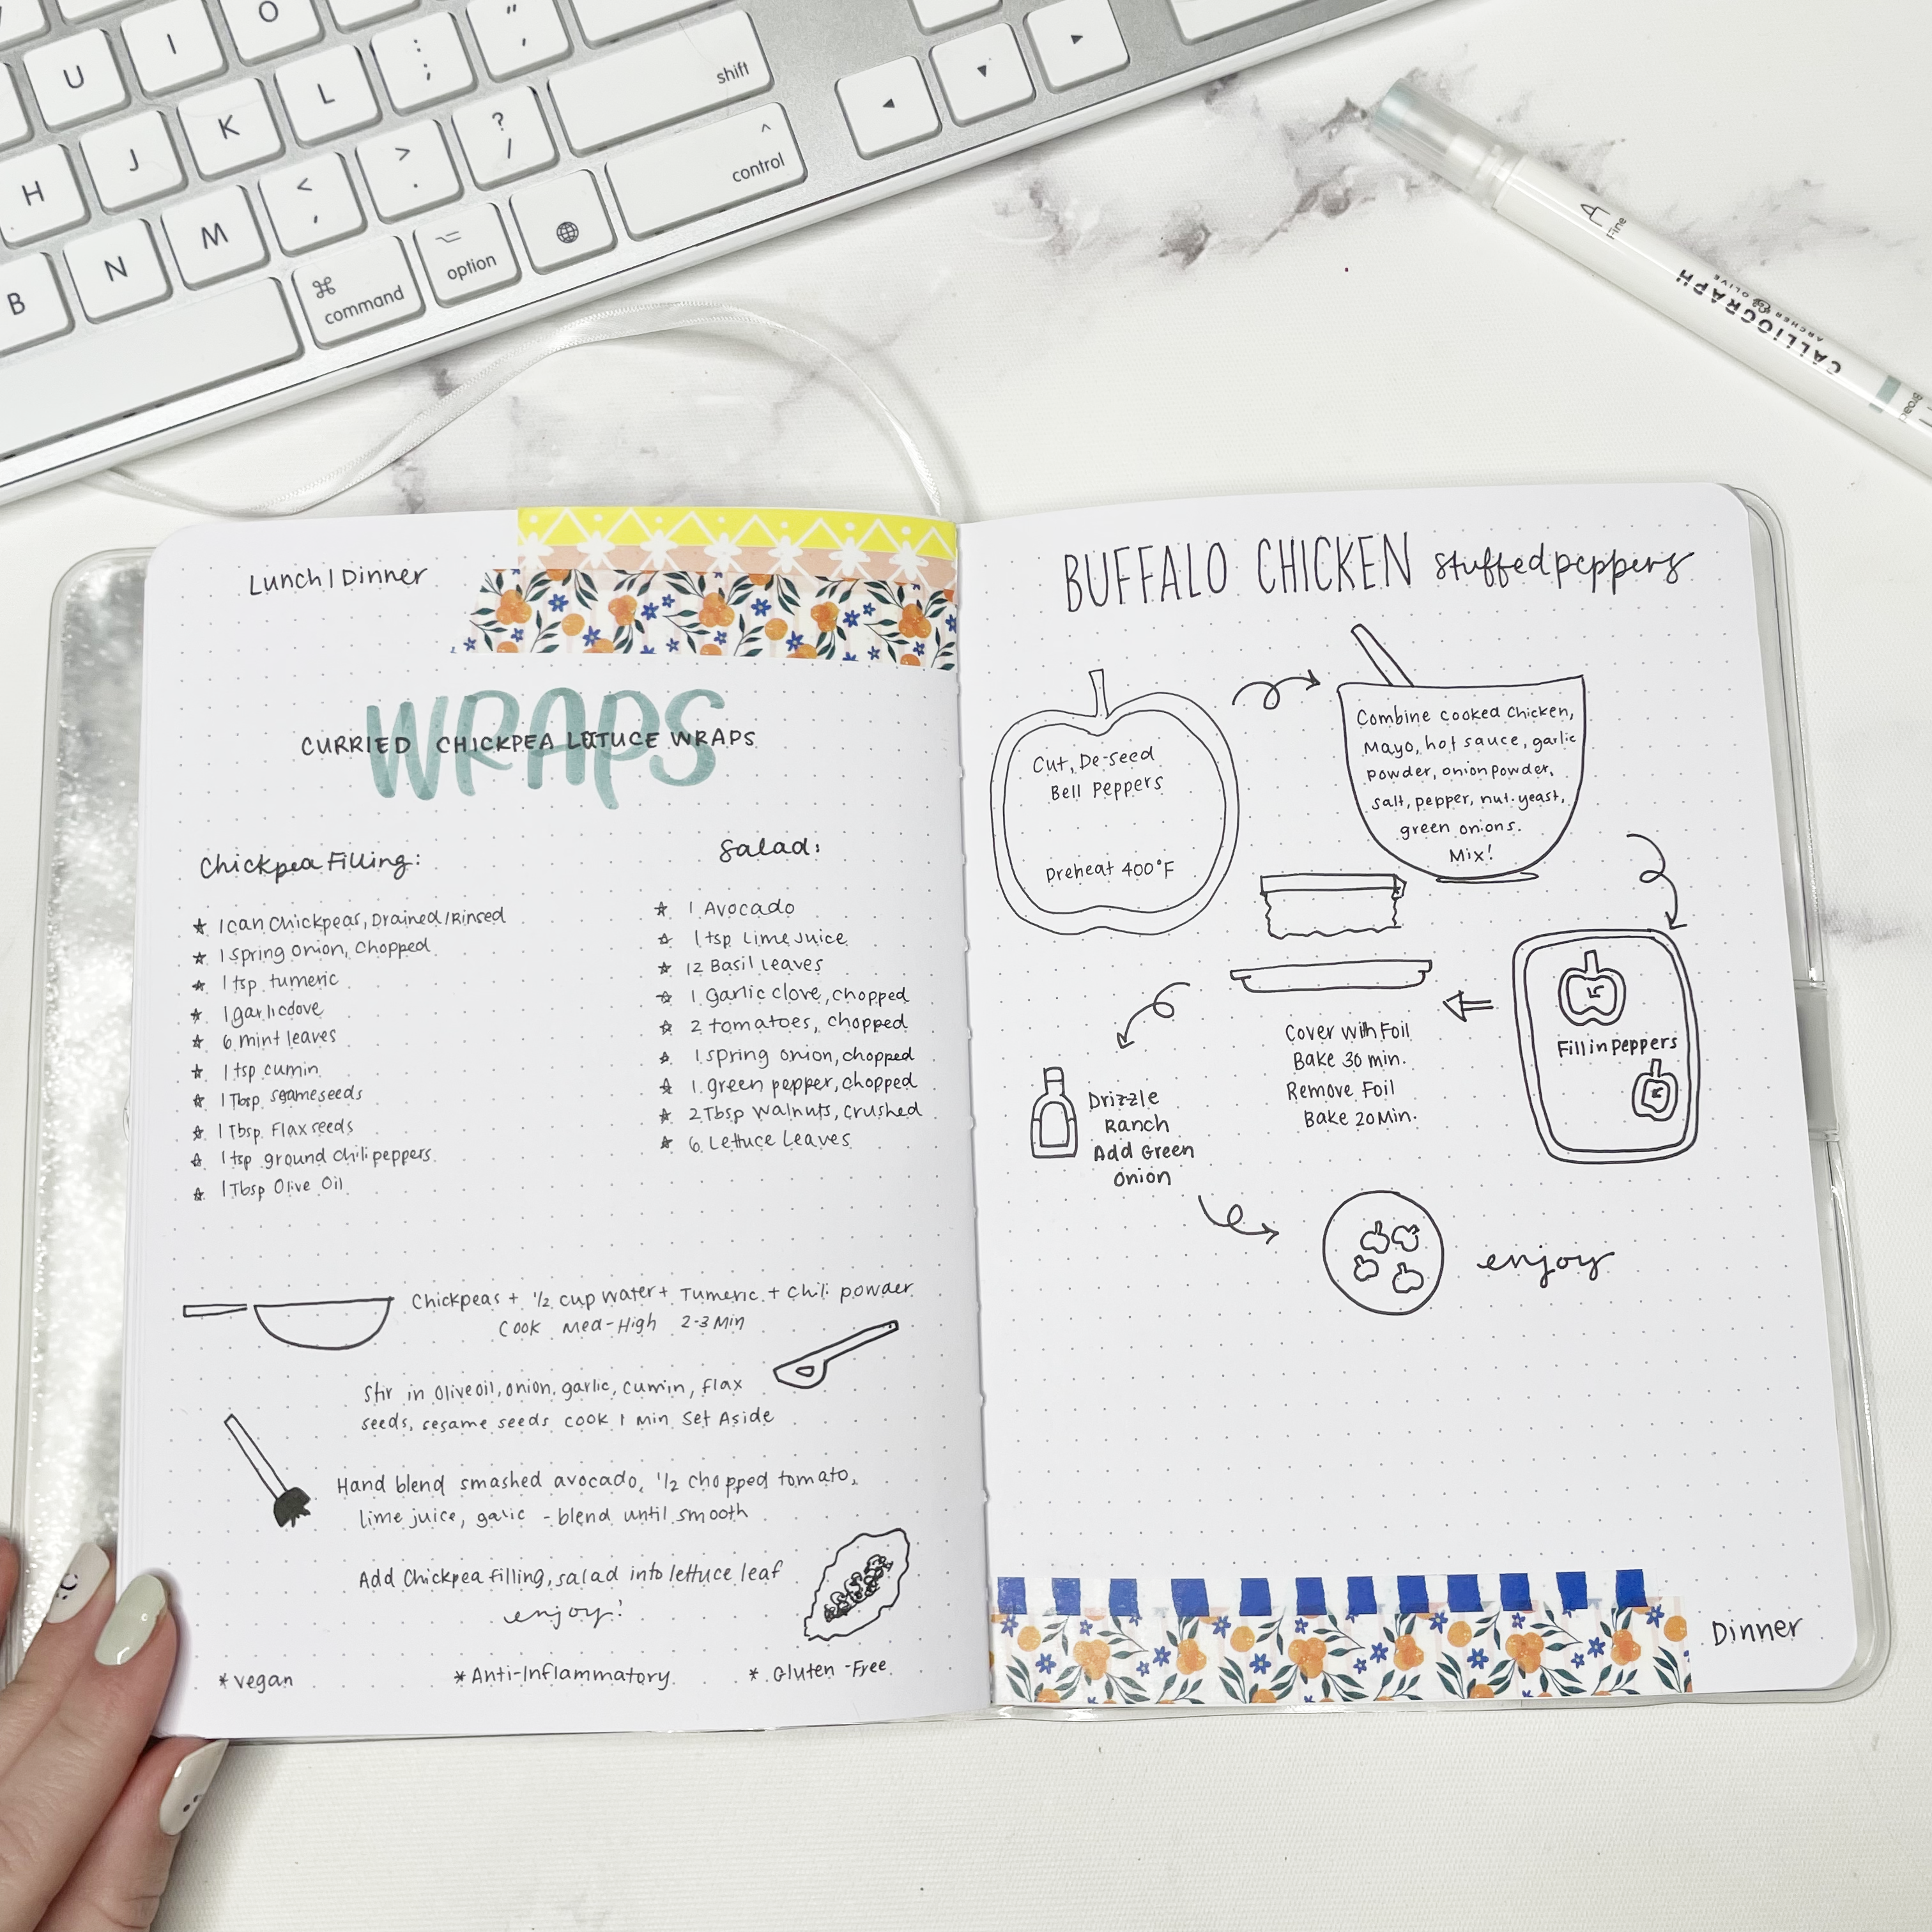 O
U
I
"
,
:
;
L
shift
K
?
/
H
J
>
.
^
control
<
,
M
N
B
⌘
command
⌥
option
A
Fine
CALLIGRAPH
ARCHER & OLIVE
Lunch | Dinner
WRAPS
CURRIED CHICKPEA LETTUCE WRAPS
Chickpea Filling:
★ 1 can Chickpeas, Drained/Rinsed
★ 1 Spring Onion, Chopped
★ 1 tsp tumeric
★ 1 garlic clove
★ 6 mint leaves
★ 1 tsp cumin
★ 1 Tbsp sesame seeds
★ 1 Tbsp Flax seeds
★ 1 tsp ground chili peppers
★ 1 Tbsp Olive Oil
Salad:
★ 1 Avocado
★ 1 tsp Lime Juice
★ 12 Basil Leaves
★ 1 garlic clove, chopped
★ 2 tomatoes, chopped
★ 1 spring onion, chopped
★ 1 green pepper, chopped
★ 2 Tbsp walnuts, crushed
★ 6 Lettuce Leaves
Chickpeas + 1/2 cup water + Tumeric + Chili powder
Cook Med-High 2-3 Min
Stir in Olive oil, onion, garlic, cumin, flax
seeds, sesame seeds cook 1 min Set Aside
Hand blend smashed avocado, 1/2 chopped tomato,
lime juice, galic - blend until smooth
Add Chickpea filling, salad into lettuce leaf
enjoy!
*Vegan
*Anti-Inflammatory
* Gluten-Free
BUFFALO CHICKEN stuffed peppers
Cut, De-seed
Bell Peppers
Preheat 400°F
Combine cooked Chicken,
Mayo, hot sauce, garlic
powder, onion powder,
salt, pepper, nut. yeast,
green onions.
Mix!
Fill in Peppers
Cover with Foil
Bake 30 min.
Remove Foil
Bake 20 Min.
Drizzle
Ranch
Add Green
Onion
enjoy
Dinner